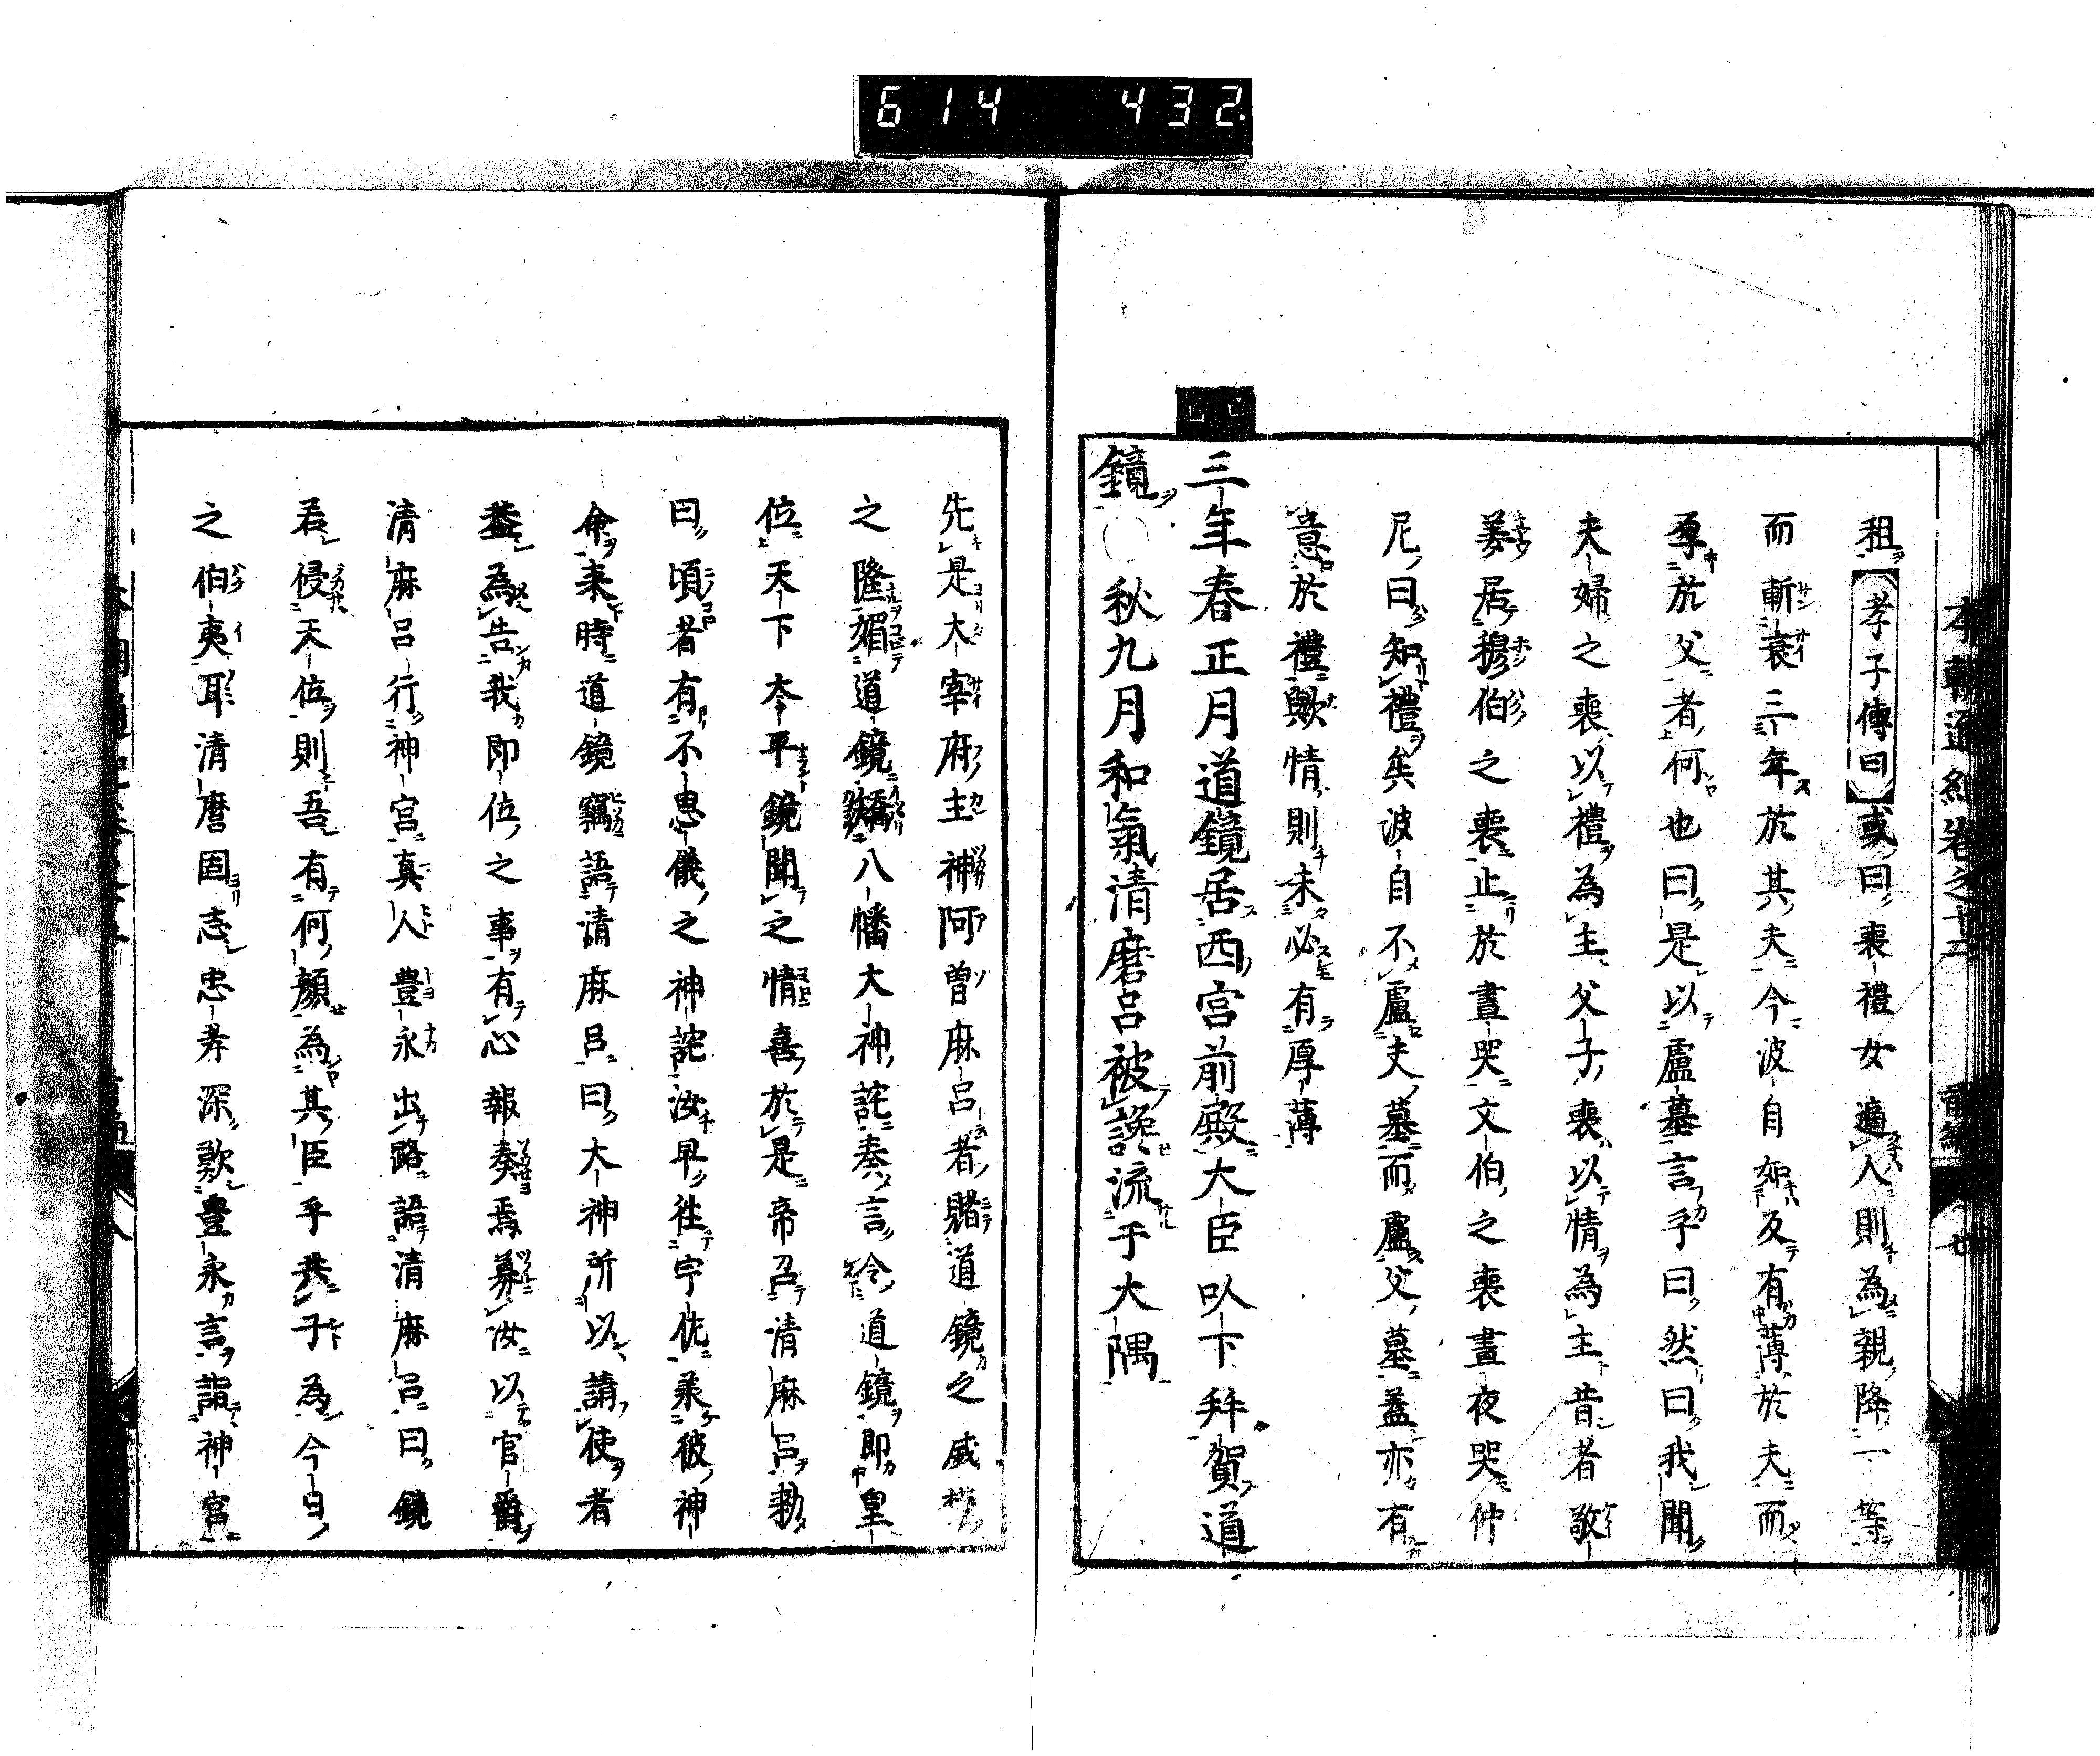 614 432
本朝通紀卷之十二 前編 廿
租【孝子傳曰】或曰喪禮女適人則為親降一等
而斬衰三年於其夫今波自如反有薄於夫而
厚於父者何也曰是以盧墓言乎曰然曰我聞
夫婦之喪以禮為主父子喪以情為主昔者敬
姜居穆伯之喪止於晝哭文伯之喪晝夜哭仲
尼曰知禮矣波自不盧夫墓而盧父墓蓋亦有
意於禮歟情則未必有厚薄
三年春正月道鏡居西宮前殿大臣以下拜賀道
鏡○秋九月和氣清磨呂被讒流于大隅
先是大宰府主神阿曽麻呂者賭道鏡之威權
之隆媚道鏡矯八幡大神詫奏言令道鏡即皇
位天下太平鏡聞之情喜於是帝召清麻呂勅
曰頃者有不思儀之神詫汝早徃宇佐羕彼神
命来時道鏡竊語清麻呂曰大神所以請使者
蓋為告我即位之事有心報奏焉募汝以官爵
清麻呂行神宮真人豊永出路語清麻呂曰鏡
若侵天位則吾有何顏為其臣乎共子為今日
之伯夷耳清麿固志忠孝深歎豊永言詣神宮